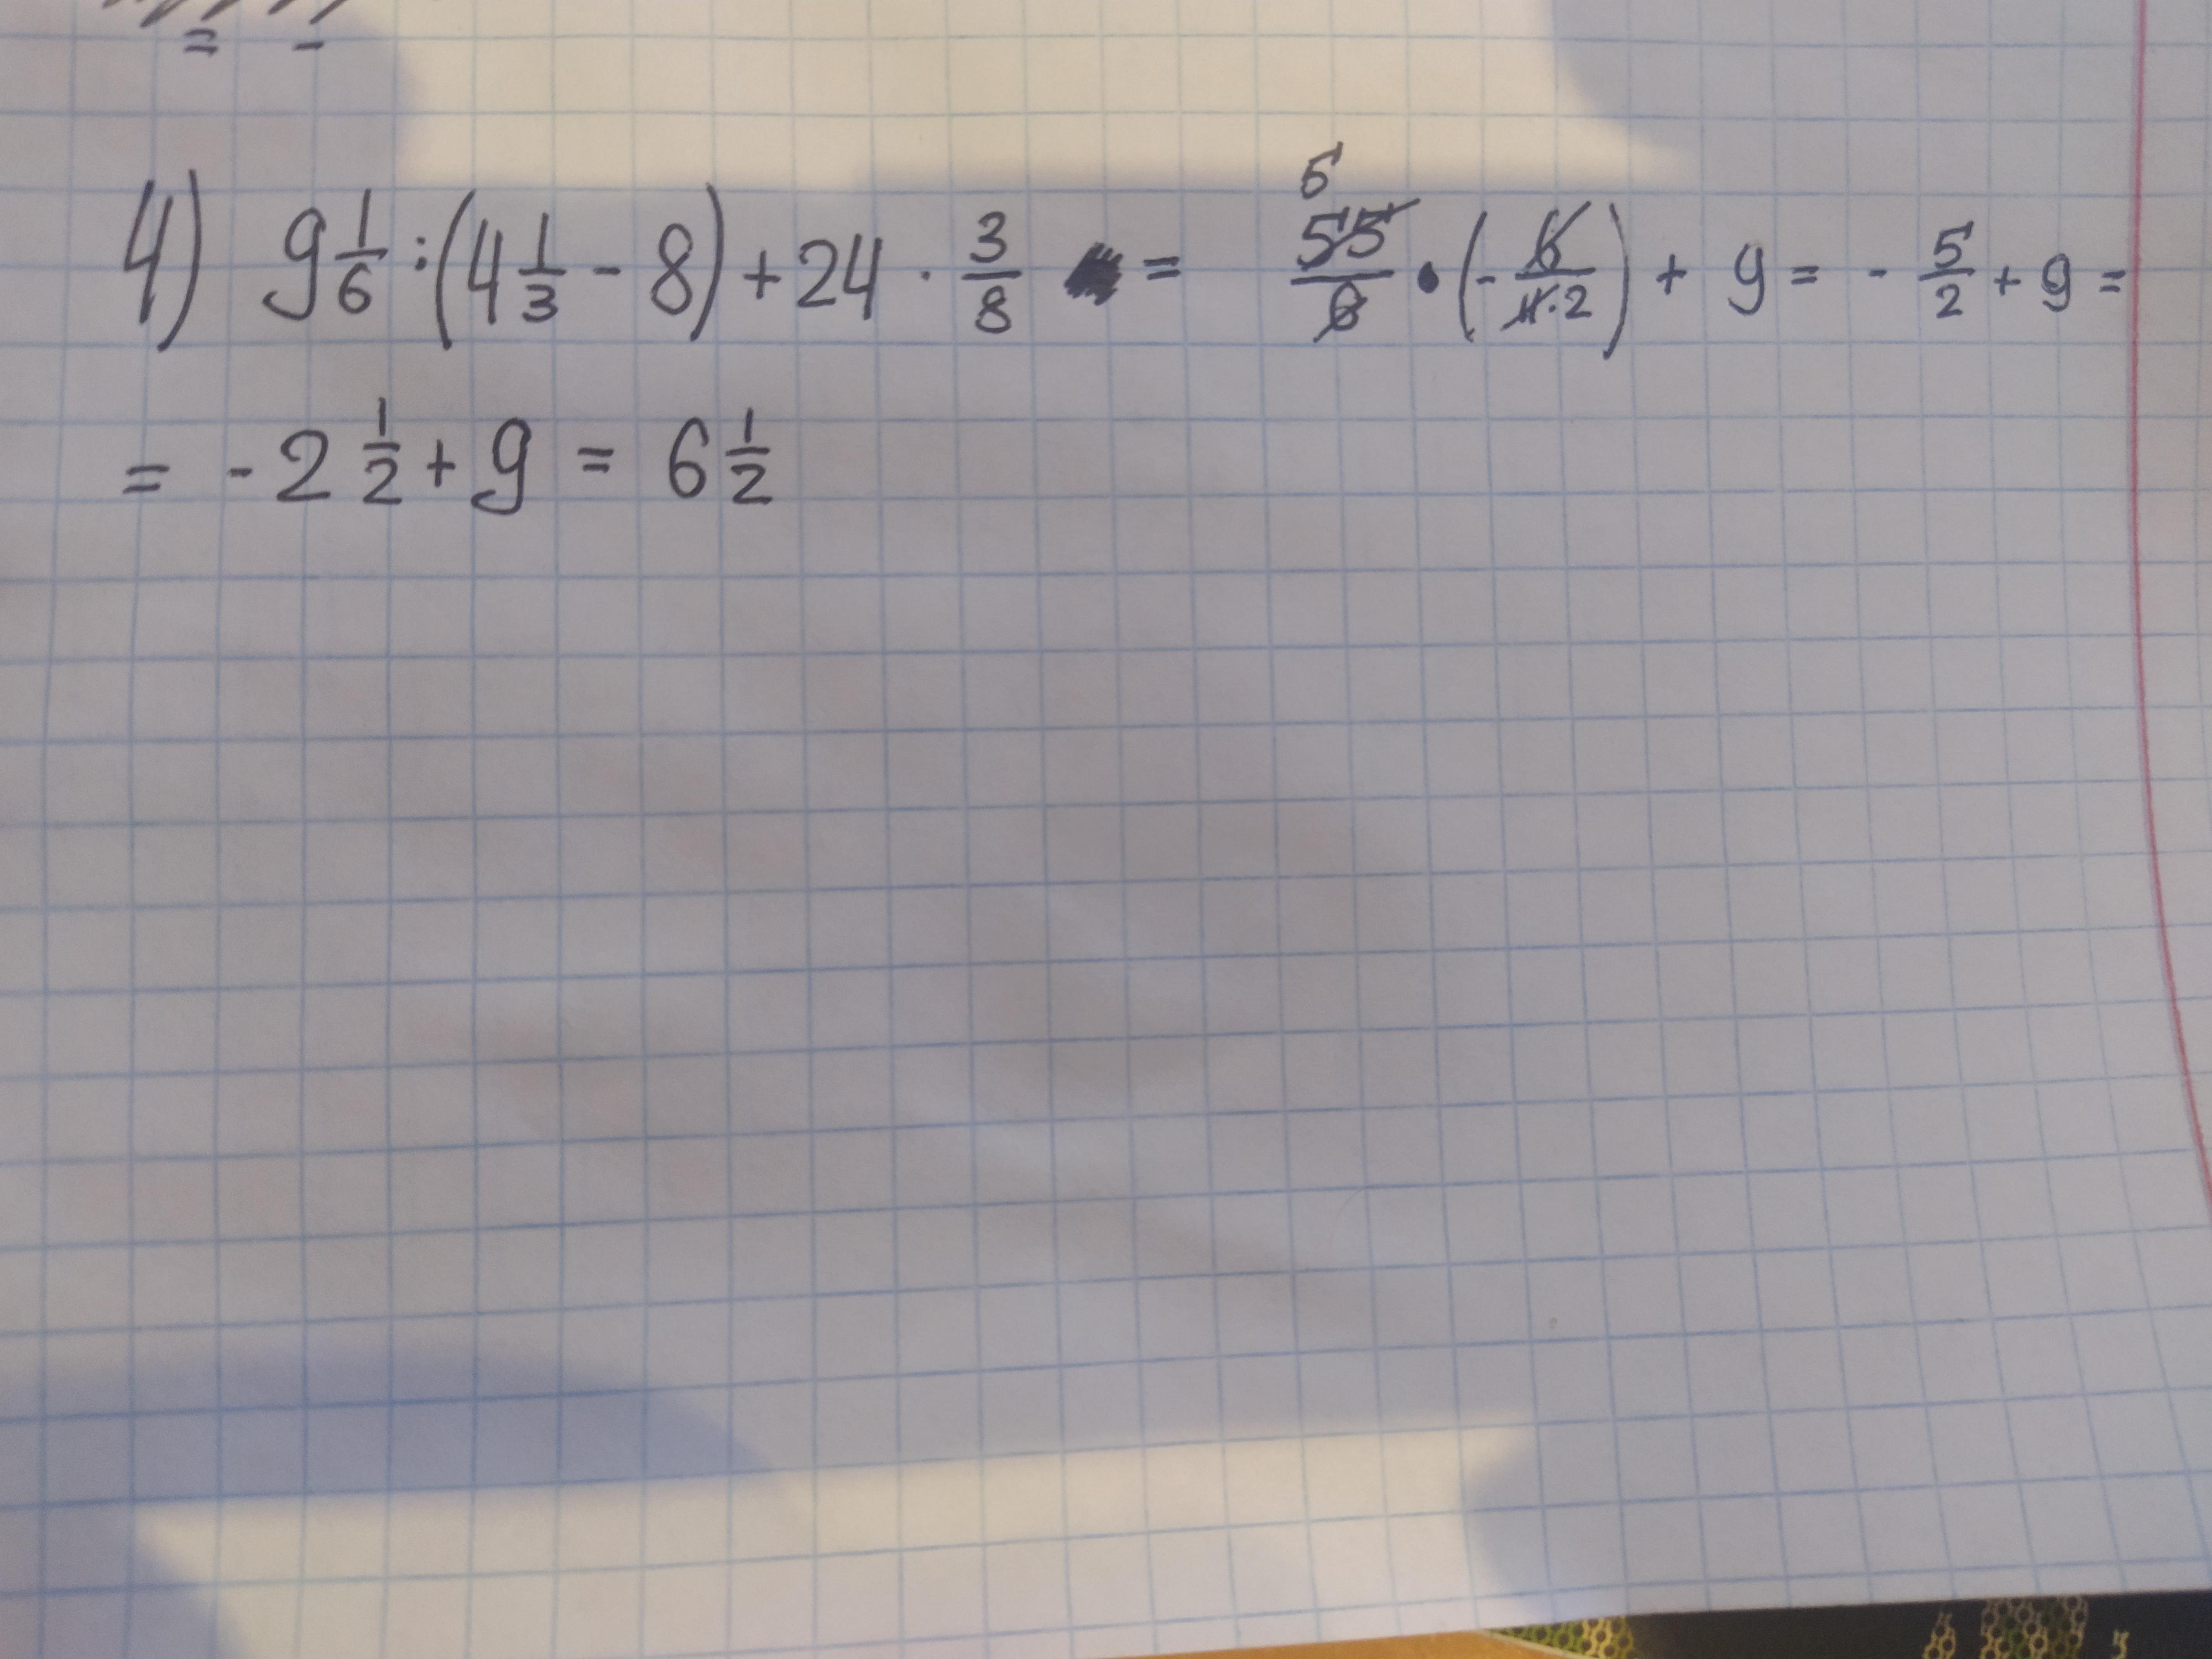 = -
4) 9 1/6 : (4 1/3 - 8) + 24 · 3/8 = 5 55/6 · (- 6/11·2) + 9 = - 5/2 + 9 =
= - 2 1/2 + 9 = 6 1/2